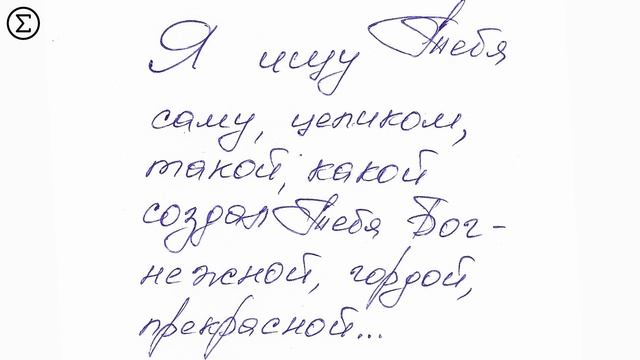 Σ
Я ищу Тебя
саму, целиком,
такой, какой
создал Тебя Бог-
нежной, гордой,
прекрасной...